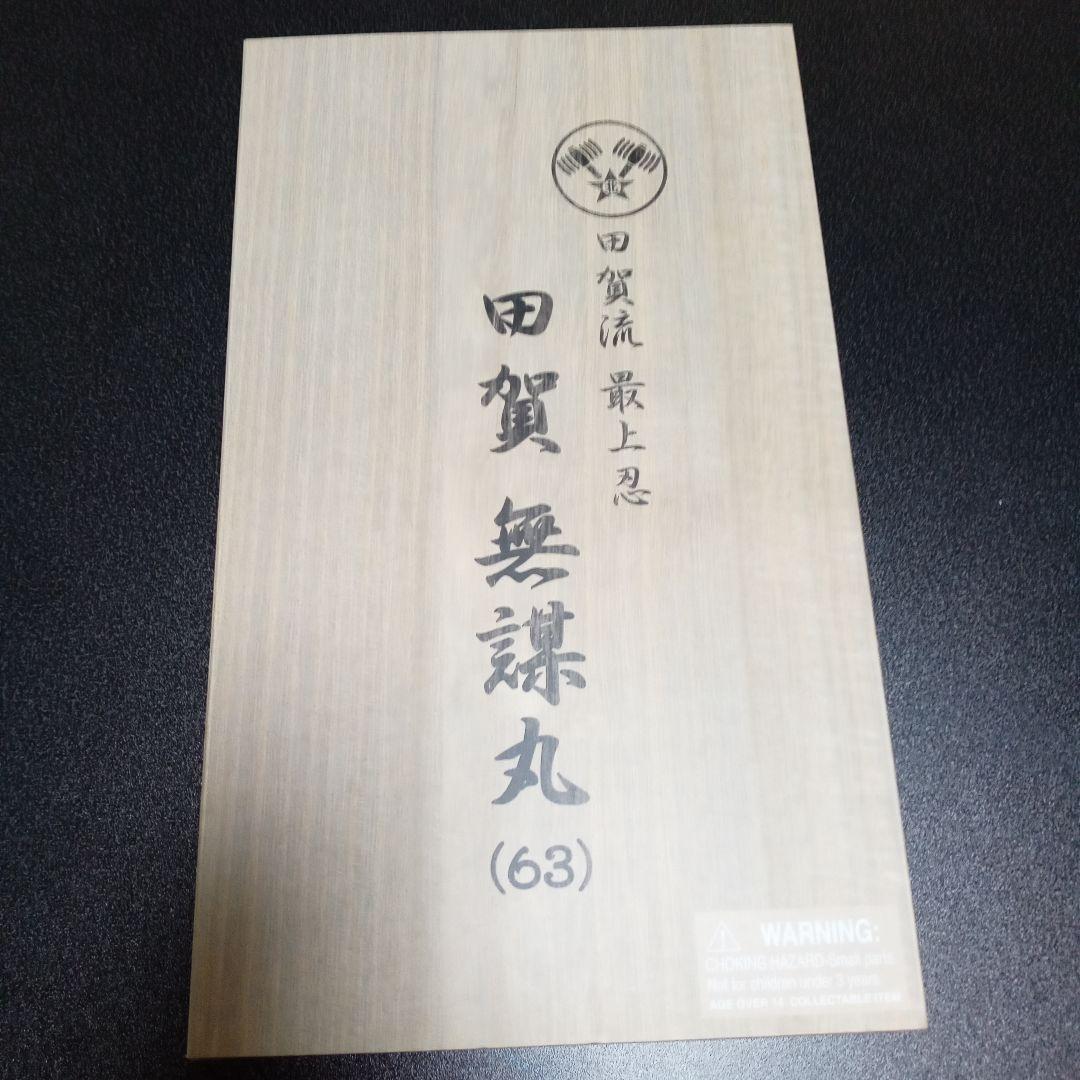 田賀流 最上忍
田賀 無謀丸
(63)
WARNING:
CHOKING HAZARD-Small parts
Not for children under 3 years.
AGE OVER 14 COLLECTABLE ITEM